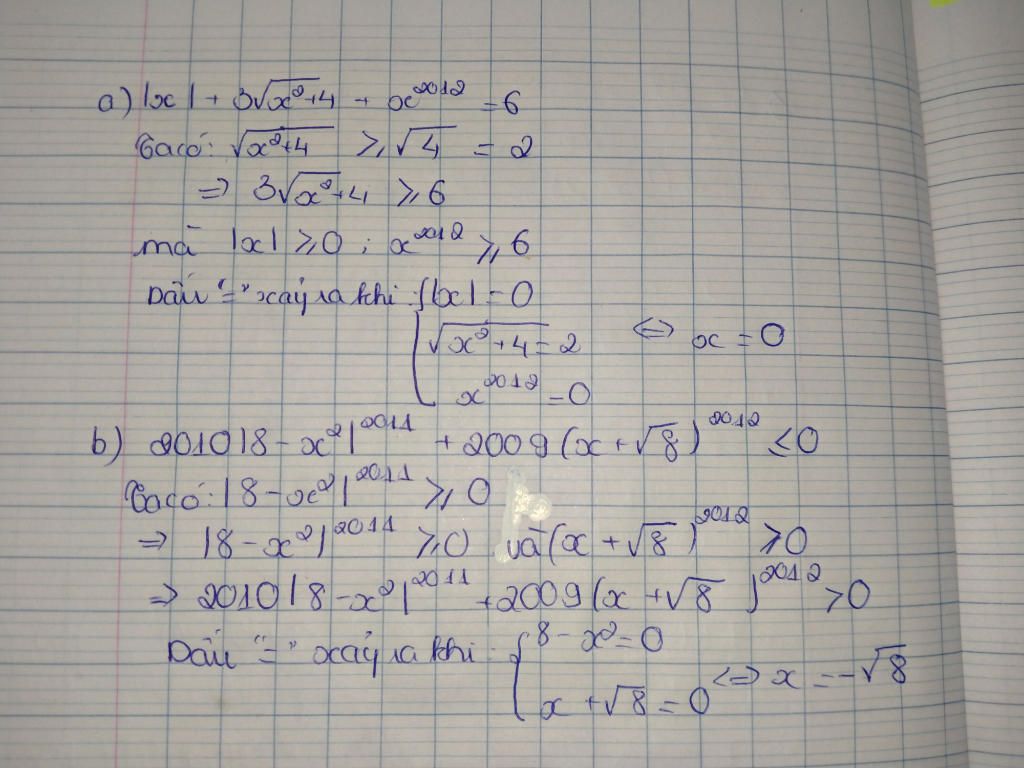 a) |x| + 3√(x²+4) + x²⁰¹² = 6
Ta có: √(x²+4) ≥ √4 = 2
⇒ 3√(x²+4) ≥ 6
mà |x| ≥ 0 ; x²⁰¹² ≥ 6
Dấu "=" xảy ra khi {|x| = 0
√(x²+4) = 2 ⇔ x = 0
x²⁰¹² = 0
b) 2010|8 - x²|²⁰¹¹ + 2009(x + √8)²⁰¹² ≤ 0
Ta có: |8 - x²|²⁰¹¹ ≥ 0
⇒ |8 - x²|²⁰¹¹ ≥ 0 và (x + √8)²⁰¹² ≥ 0
⇒ 2010|8 - x²|²⁰¹¹ + 2009(x + √8)²⁰¹² ≥ 0
Dấu "=" xảy ra khi: {8 - x² = 0
x + √8 = 0 ⇔ x = -√8